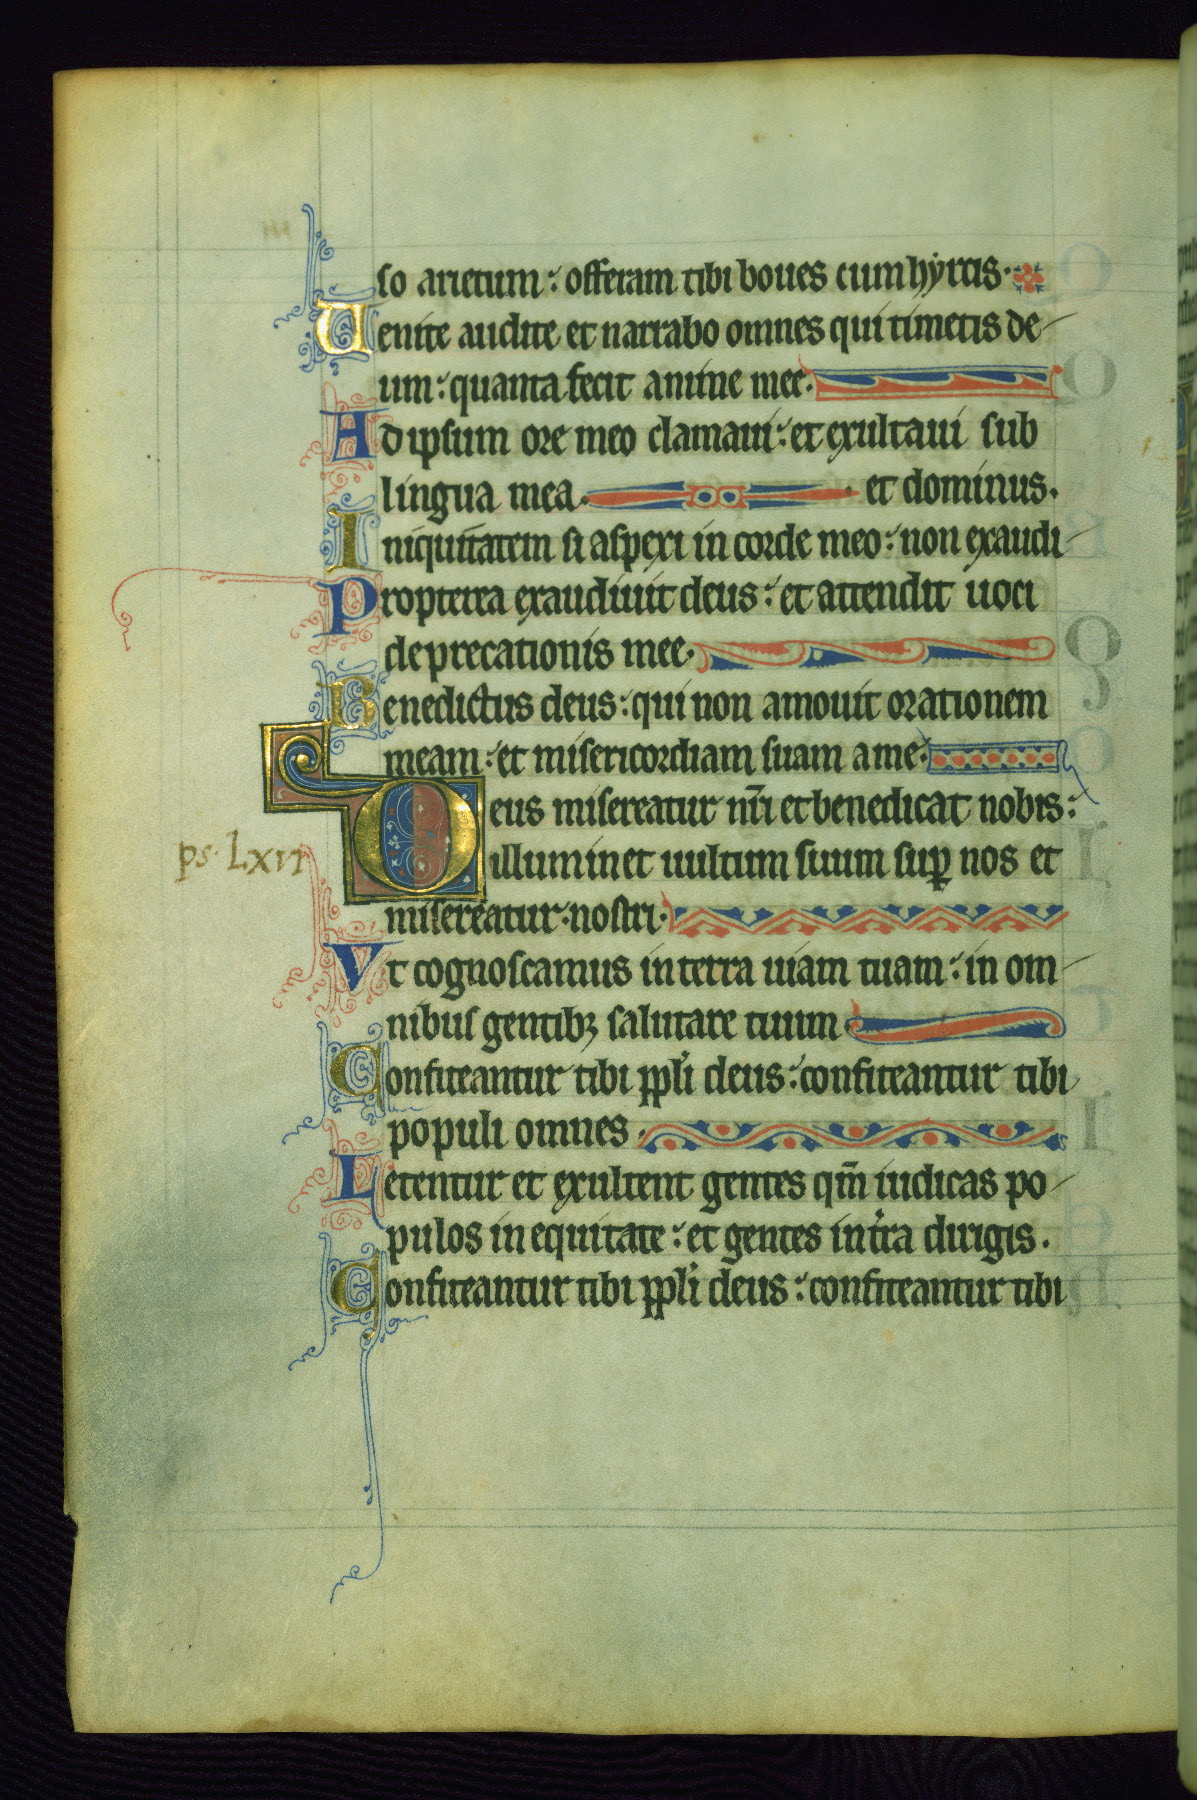 so arietum: offeram tibi boues cum hyrcis.
Uenite audite et narrabo omnes qui timetis de
um: quanta fecit anime mee.
Ad ipsum ore meo clamaui: et exultaui sub
lingua mea. et dominus.
Iniquitatem si aspexi in corde meo: non exaudi
Propterea exaudiuit deus: et attendit uoci
deprecationis mee.
Benedictus deus: qui non amouit orationem
meam: et misericordiam suam a me.
Deus misereatur nr̄i et benedicat nobis:
ps. Lxvi
illuminet uultum suum suꝑ nos et
misereatur nostri.
Vt cognoscamus in terra uiam tuam: in om
nibus gentibꝫ salutare tuum
Confiteantur tibi ppl̓i deus: confiteantur tibi
populi omnes.
Letentur et exultent gentes qm̄ iudicas po
pulos in equitate: et gentes in tr̓a dirigis.
Confiteantur tibi ppl̓i deus: confiteantur tibi